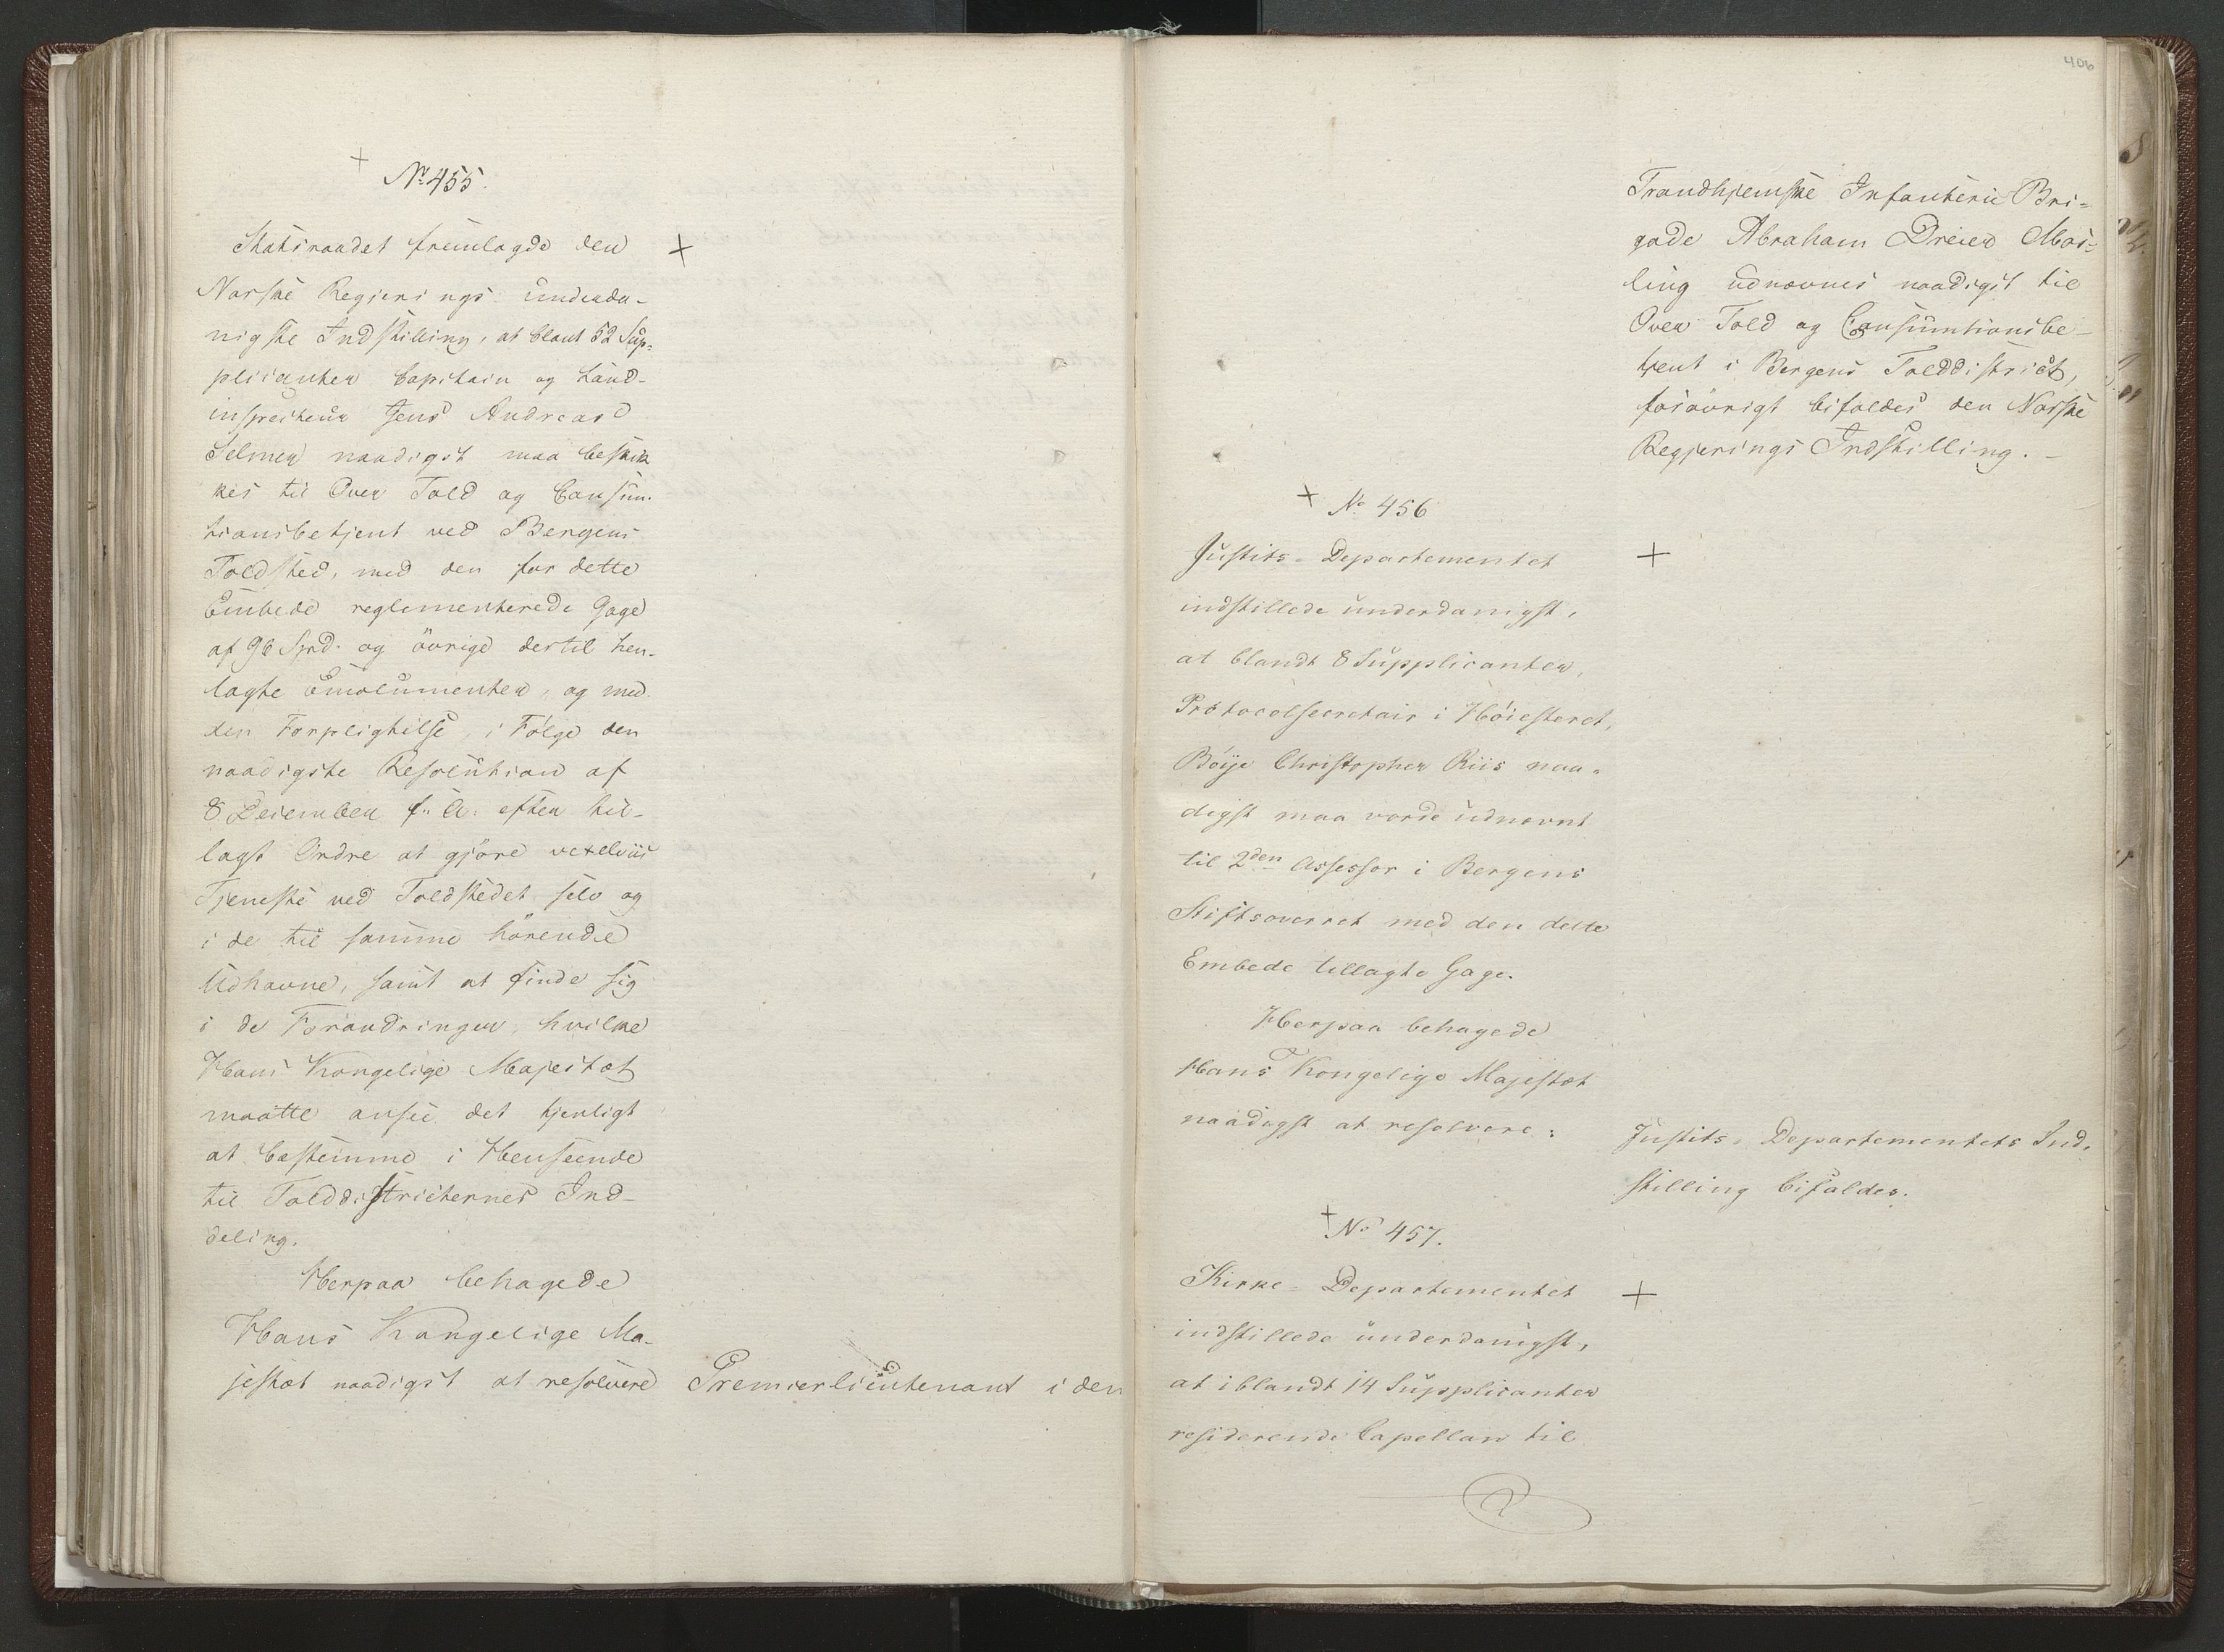 No 455.
Statsraadet fremlagde den
Norske Regjerings underda-
nigste Indstilling, at blant 52 Sup-
plicanter Capitain og Land-
inspecteur Jens Andreas
Selmer naadigst maa beskik
kes til Over Told og Consum-
tionsbetjent ved Bergens
Toldsted, med den for dette
Embede reglementerede Gage
af 96 Spd. og övrige dertil hen-
lagte Emolumenter, og med
den Forpligtelse, i Fölge den
naadigste Resolution af
8 December f: A: efter til-
lagt Ordre at gjöre vexelviis
Tjeneste ved Toldstedet selv og
i de til samme hörende
Udhavne, samt at finde sig
i de Forandringer, hvilke
Hans Kongelige Majestæt
maatte ansee det tjenligt
at bestemme i Henseende
til Tolddistricternes Ind-
deling.
Herpaa behagede
Hans Kongelige Ma-
jestæt naadigst at resolvere
Premierlieutenant i den
406
Trondhjemske Infanterie Bri-
gade Abraham Dreier
udnævnes naadigst til
Over Told og Consumtionsbe-
tjent i Bergens Tolddistrict,
forövrigt bifaldes den Norske
Regjerings Indstilling. -
No 456
Justits-Departementet
indstillede underdanigst,
at blandt 8 Supplicanter,
Protocolsecretair i Höiesteret,
Böije Christopher Riis naa-
digst maa vorde udnævnt
til 2den Assessor i Bergens
Stiftsoverret med den dette
Embede tillagte Gage.
Herpaa behagede
Hans Kongelige Majestæt
naadigst at resolvere:
Justits-Departementets Ind-
stilling bifaldes.
No 457.
Kirke-Departementet
indstillede underdanigst,
at iblandt 14 Supplicanter
residerende Capellan til